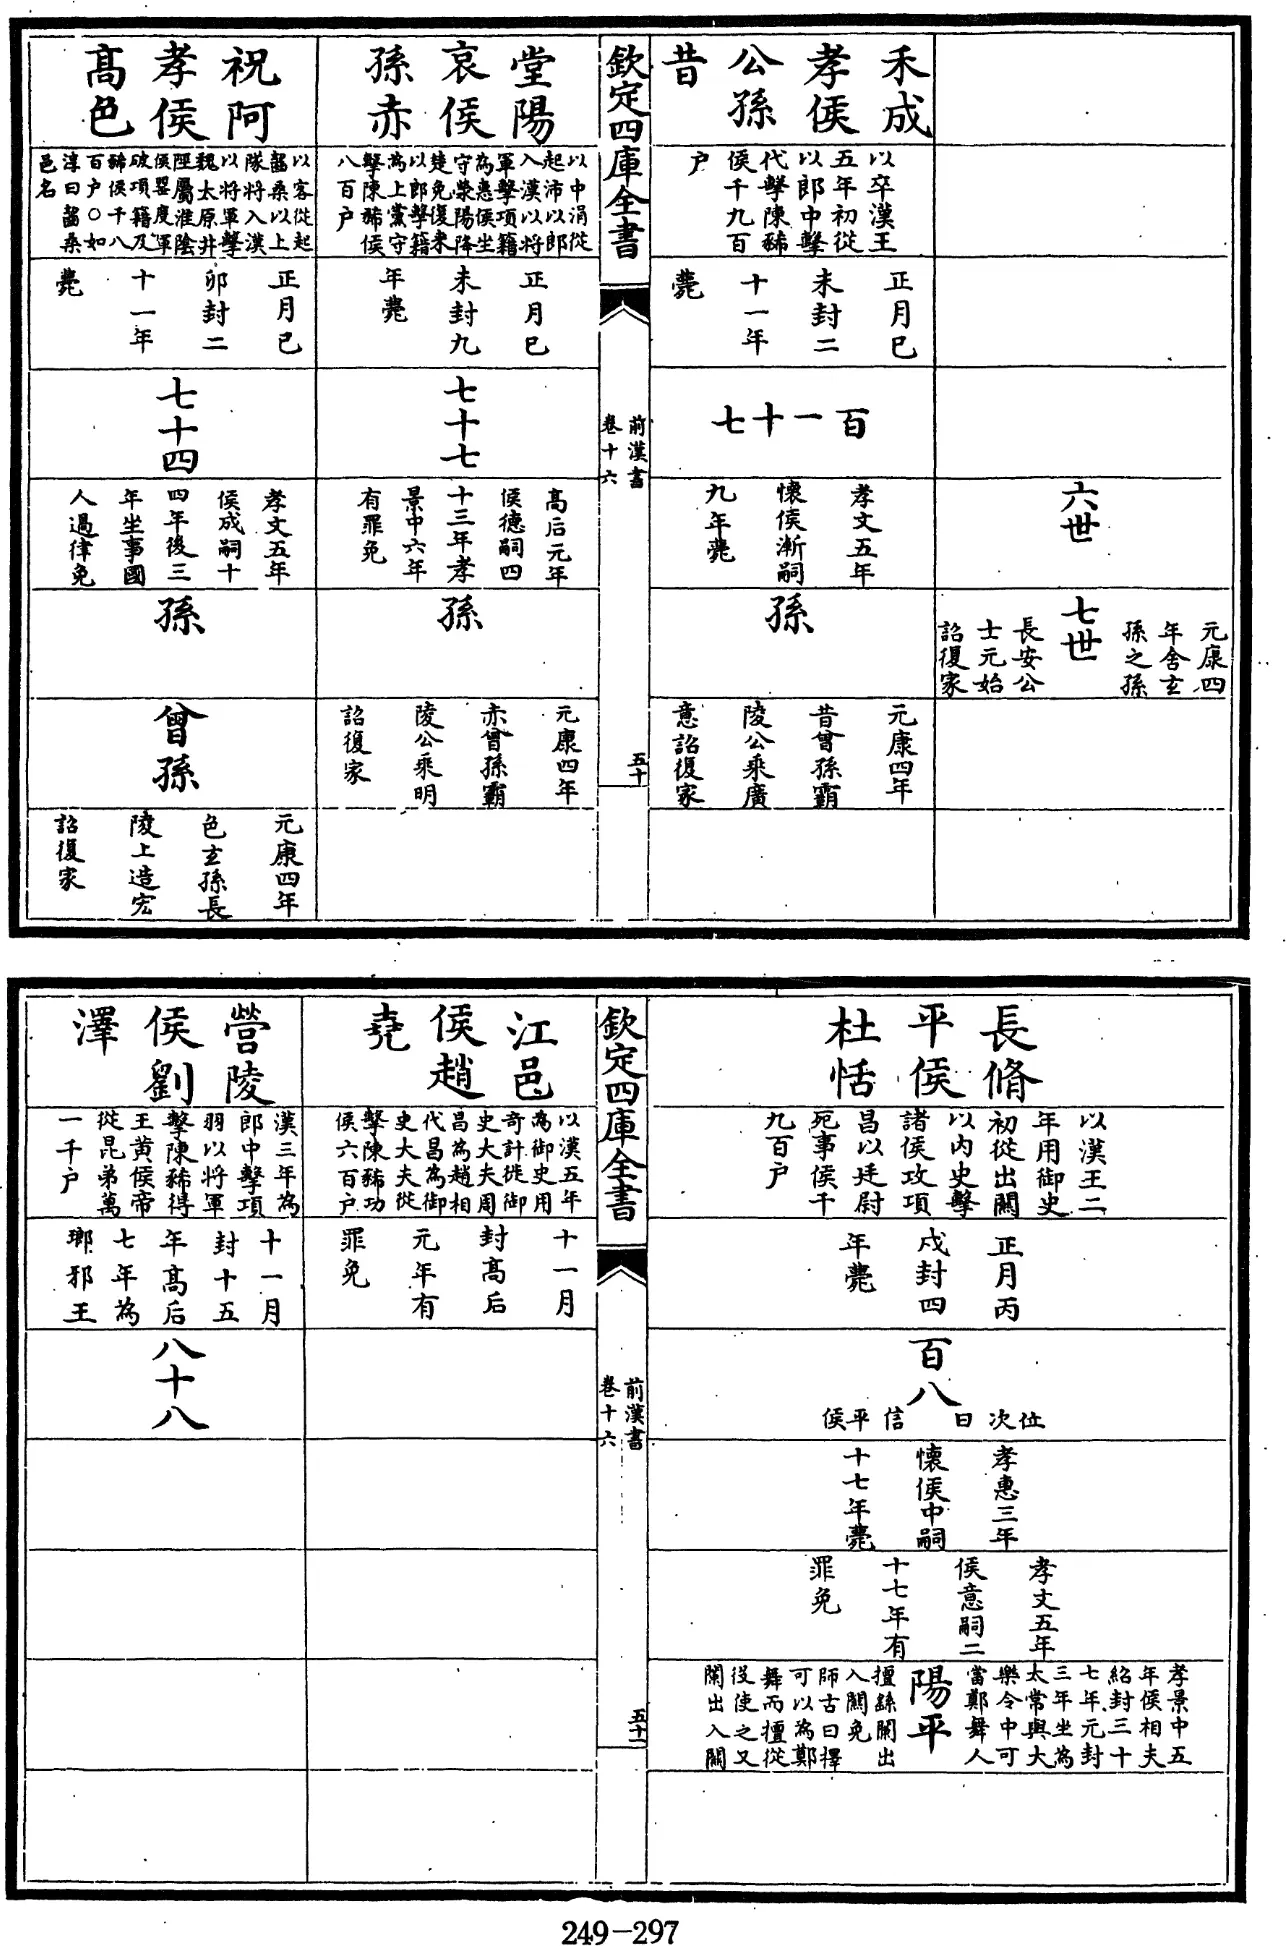 六世
七世
元康四
年舍玄
孫之孫
長安公
士元始
詔復家
禾成
孝侯
公孫
昔
以卒漢王
五年初從
以郎中擊
代擊陳豨
侯千九百
户
正月巳
未封二
十一年
薨
百一十七
孝文五年
懷侯漸嗣
九年薨
孫
元康四年
昔曾孫霸
陵公乘廣
意詔復家
欽定四庫全書
前漢書
卷十六
五十
堂陽
哀侯
孫赤
以中涓從
起沛以郎
入漢以將
軍擊項籍
為惠侯坐
守滎陽降
楚免復來
以郎擊籍
為上黨守
擊陳豨侯
八百户
正月巳
未封九
年薨
七十七
高后元年
侯德嗣四
十三年孝
景中六年
有罪免
孫
元康四年
赤曾孫霸
陵公乘明
詔復家
祝阿
孝侯
髙色
以客從起
齧桑以上
隊將入漢
以將軍擊
魏太原井
陘屬淮陰
侯罌度軍
破項籍及
豨侯千八
百户○如
淳曰齧桑
邑名
正月巳
卯封二
十一年
薨
七十四
孝文五年
侯成嗣十
四年後三
年坐事國
人過律免
孫
曾孫
元康四年
色玄孫長
陵上造宏
詔復家
長脩
平侯
杜恬
以漢王二
年用御史
初從出關
以内史擊
諸侯攻項
昌以廷尉
死事侯千
九百户
正月丙
戌封四
年薨
百八
位次曰信平侯
孝惠三年
懷侯中嗣
十七年薨
孝文五年
侯意嗣二
十七年有
罪免
陽平
孝景中五
年侯相夫
紹封三十
七年元封
三年坐為
太常與大
樂令中可
當鄭舞人
擅繇闌出
入關免
師古曰擇
可以為鄭
舞而擅從
役使之又
闌出入關
欽定四庫全書
前漢書
卷十六
五十一
江邑
侯趙
堯
以漢五年
為御史用
奇計徙御
史大夫周
昌為趙相
代昌為御
史大夫從
擊陳豨功
侯六百户
十一月
封高后
元年有
罪免
營陵
侯劉
澤
漢三年為
郎中擊項
羽以將軍
擊陳豨得
王黃侯帝
從昆弟萬
一千户
十一月
封十五
年高后
七年為
瑯邪王
八十八
249-297